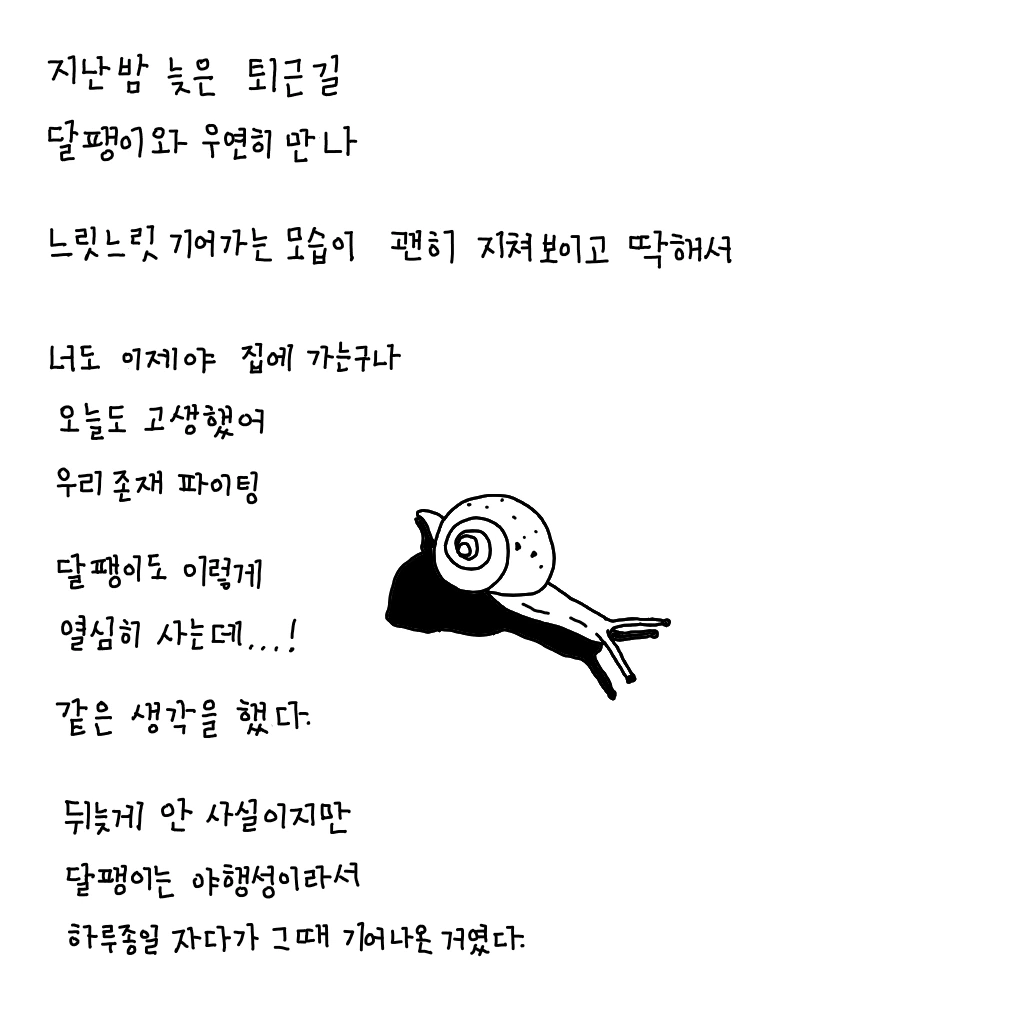 지난밤 늦은 퇴근길
달팽이와 우연히 만나
느릿느릿 기어가는 모습이 괜히 지쳐보이고 딱해서
너도 이제야 집에 가는구나
오늘도 고생했어
우리존재 파이팅
달팽이도 이렇게
열심히 사는데...!
같은 생각을 했다.
뒤늦게 안 사실이지만
달팽이는 야행성이라서
하루종일 자다가 그때 기어나온 거였다.